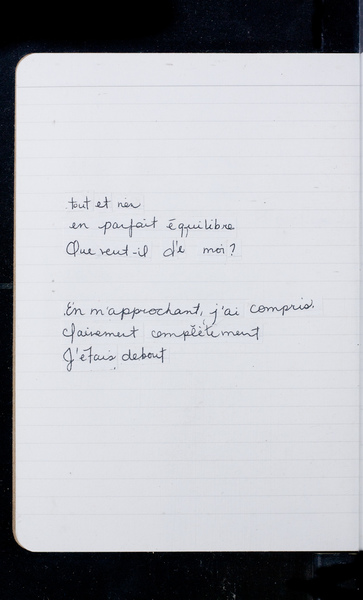 tout et rien
en parfait équilibre
Que veut-il de moi?
En m'approchant, j'ai compris.
Clairement complètement
J'étais debout